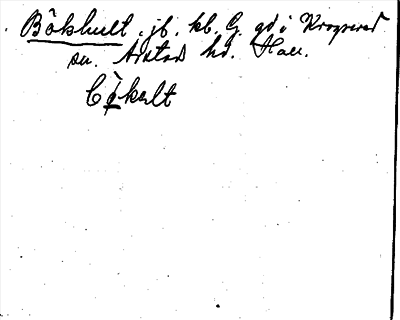 Bökhult. jb. kb. G. gd i Krogsered
sn. Årstad hd. Hall.
bö̀kult